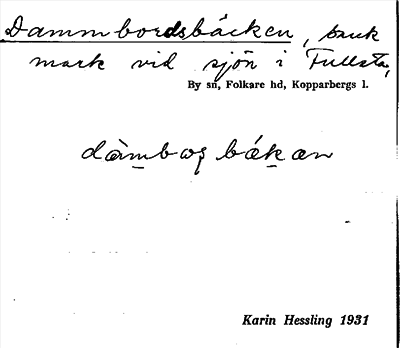 Dammbordsbäcken, sank
mark vid sjön i Fullsta,
By sn, Folkare hd, Kopparbergs l.
Karin Hessling 1931